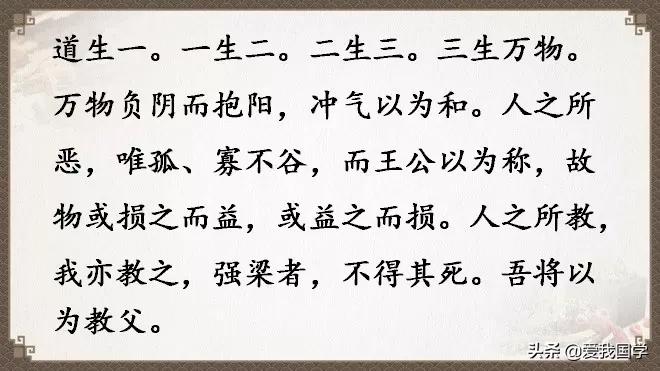 道生一。一生二。二生三。三生万物。
万物负阴而抱阳，冲气以为和。人之所
恶，唯孤、寡不谷，而王公以为称，故
物或损之而益，或益之而损。人之所教，
我亦教之，强梁者，不得其死。吾将以
为教父。
头条 @爱我国学